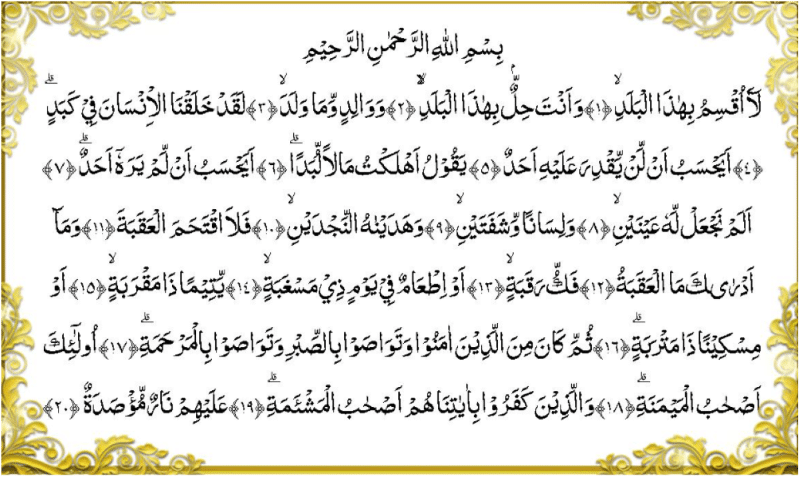 بِسْمِ اللهِ الرَّحْمٰنِ الرَّحِيْمِ
لَآ اُقْسِمُ بِهٰذَا الْبَلَدِۙ ﴿١﴾ وَاَنْتَ حِلٌّۢ بِهٰذَا الْبَلَدِۙ ﴿٢﴾ وَوَالِدٍ وَّمَا وَلَدَۙ ﴿٣﴾ لَقَدْ خَلَقْنَا الْاِنْسَانَ فِيْ كَبَدٍۗ
﴿٤﴾ اَيَحْسَبُ اَنْ لَّنْ يَّقْدِرَ عَلَيْهِ اَحَدٌ ﴿٥﴾ يَقُوْلُ اَهْلَكْتُ مَالًا لُّبَدًاۗ ﴿٦﴾ اَيَحْسَبُ اَنْ لَّمْ يَرَهٗٓ اَحَدٌۗ ﴿٧﴾
اَلَمْ نَجْعَلْ لَّهٗ عَيْنَيْنِۙ ﴿٨﴾ وَلِسَانًا وَّشَفَتَيْنِۙ ﴿٩﴾ وَهَدَيْنٰهُ النَّجْدَيْنِۙ ﴿١٠﴾ فَلَا اقْتَحَمَ الْعَقَبَةَ ﴿١١﴾ وَمَآ
اَدْرٰىكَ مَا الْعَقَبَةُ ﴿١٢﴾ فَكُّ رَقَبَةٍۙ ﴿١٣﴾ اَوْ اِطْعَامٌ فِيْ يَوْمٍ ذِيْ مَسْغَبَةٍۙ ﴿١٤﴾ يَّتِيْمًا ذَا مَقْرَبَةٍۙ ﴿١٥﴾ اَوْ
مِسْكِيْنًا ذَا مَتْرَبَةٍۗ ﴿١٦﴾ ثُمَّ كَانَ مِنَ الَّذِيْنَ اٰمَنُوْا وَتَوَاصَوْا بِالصَّبْرِ وَتَوَاصَوْا بِالْمَرْحَمَةِۗ ﴿١٧﴾ اُولٰۤىِٕكَ
اَصْحٰبُ الْمَيْمَنَةِۗ ﴿١٨﴾ وَالَّذِيْنَ كَفَرُوْا بِاٰيٰتِنَا هُمْ اَصْحٰبُ الْمَشْـَٔمَةِۗ ﴿١٩﴾ عَلَيْهِمْ نَارٌ مُّؤْصَدَةٌ ﴿٢٠﴾